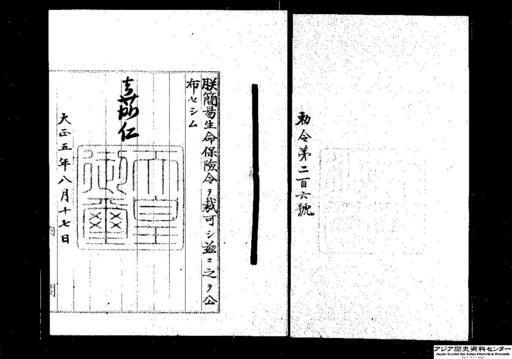 勅令第二百六號
朕簡易生命保險令ヲ裁可シ茲ニ之ヲ公
布セシム
嘉仁
天皇
御璽
大正五年八月十七日
アジア歴史資料センター
Japan Center for Asian Historical Records